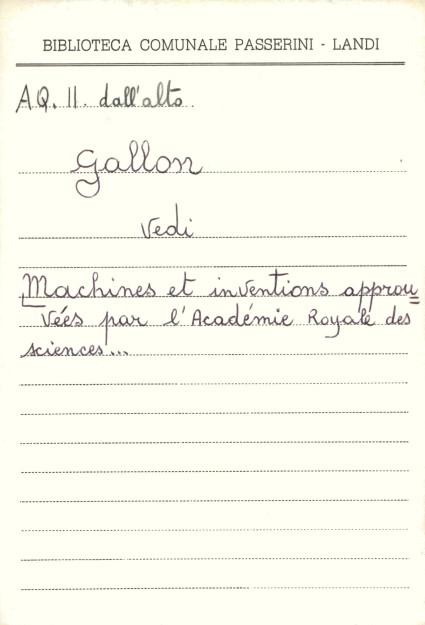 BIBLIOTECA COMUNALE PASSERINI - LANDI
AQ. II. dall'alto.
Gallon
Vedi
Machines et inventions approu=
vées par l'Académie Royale des
sciences...